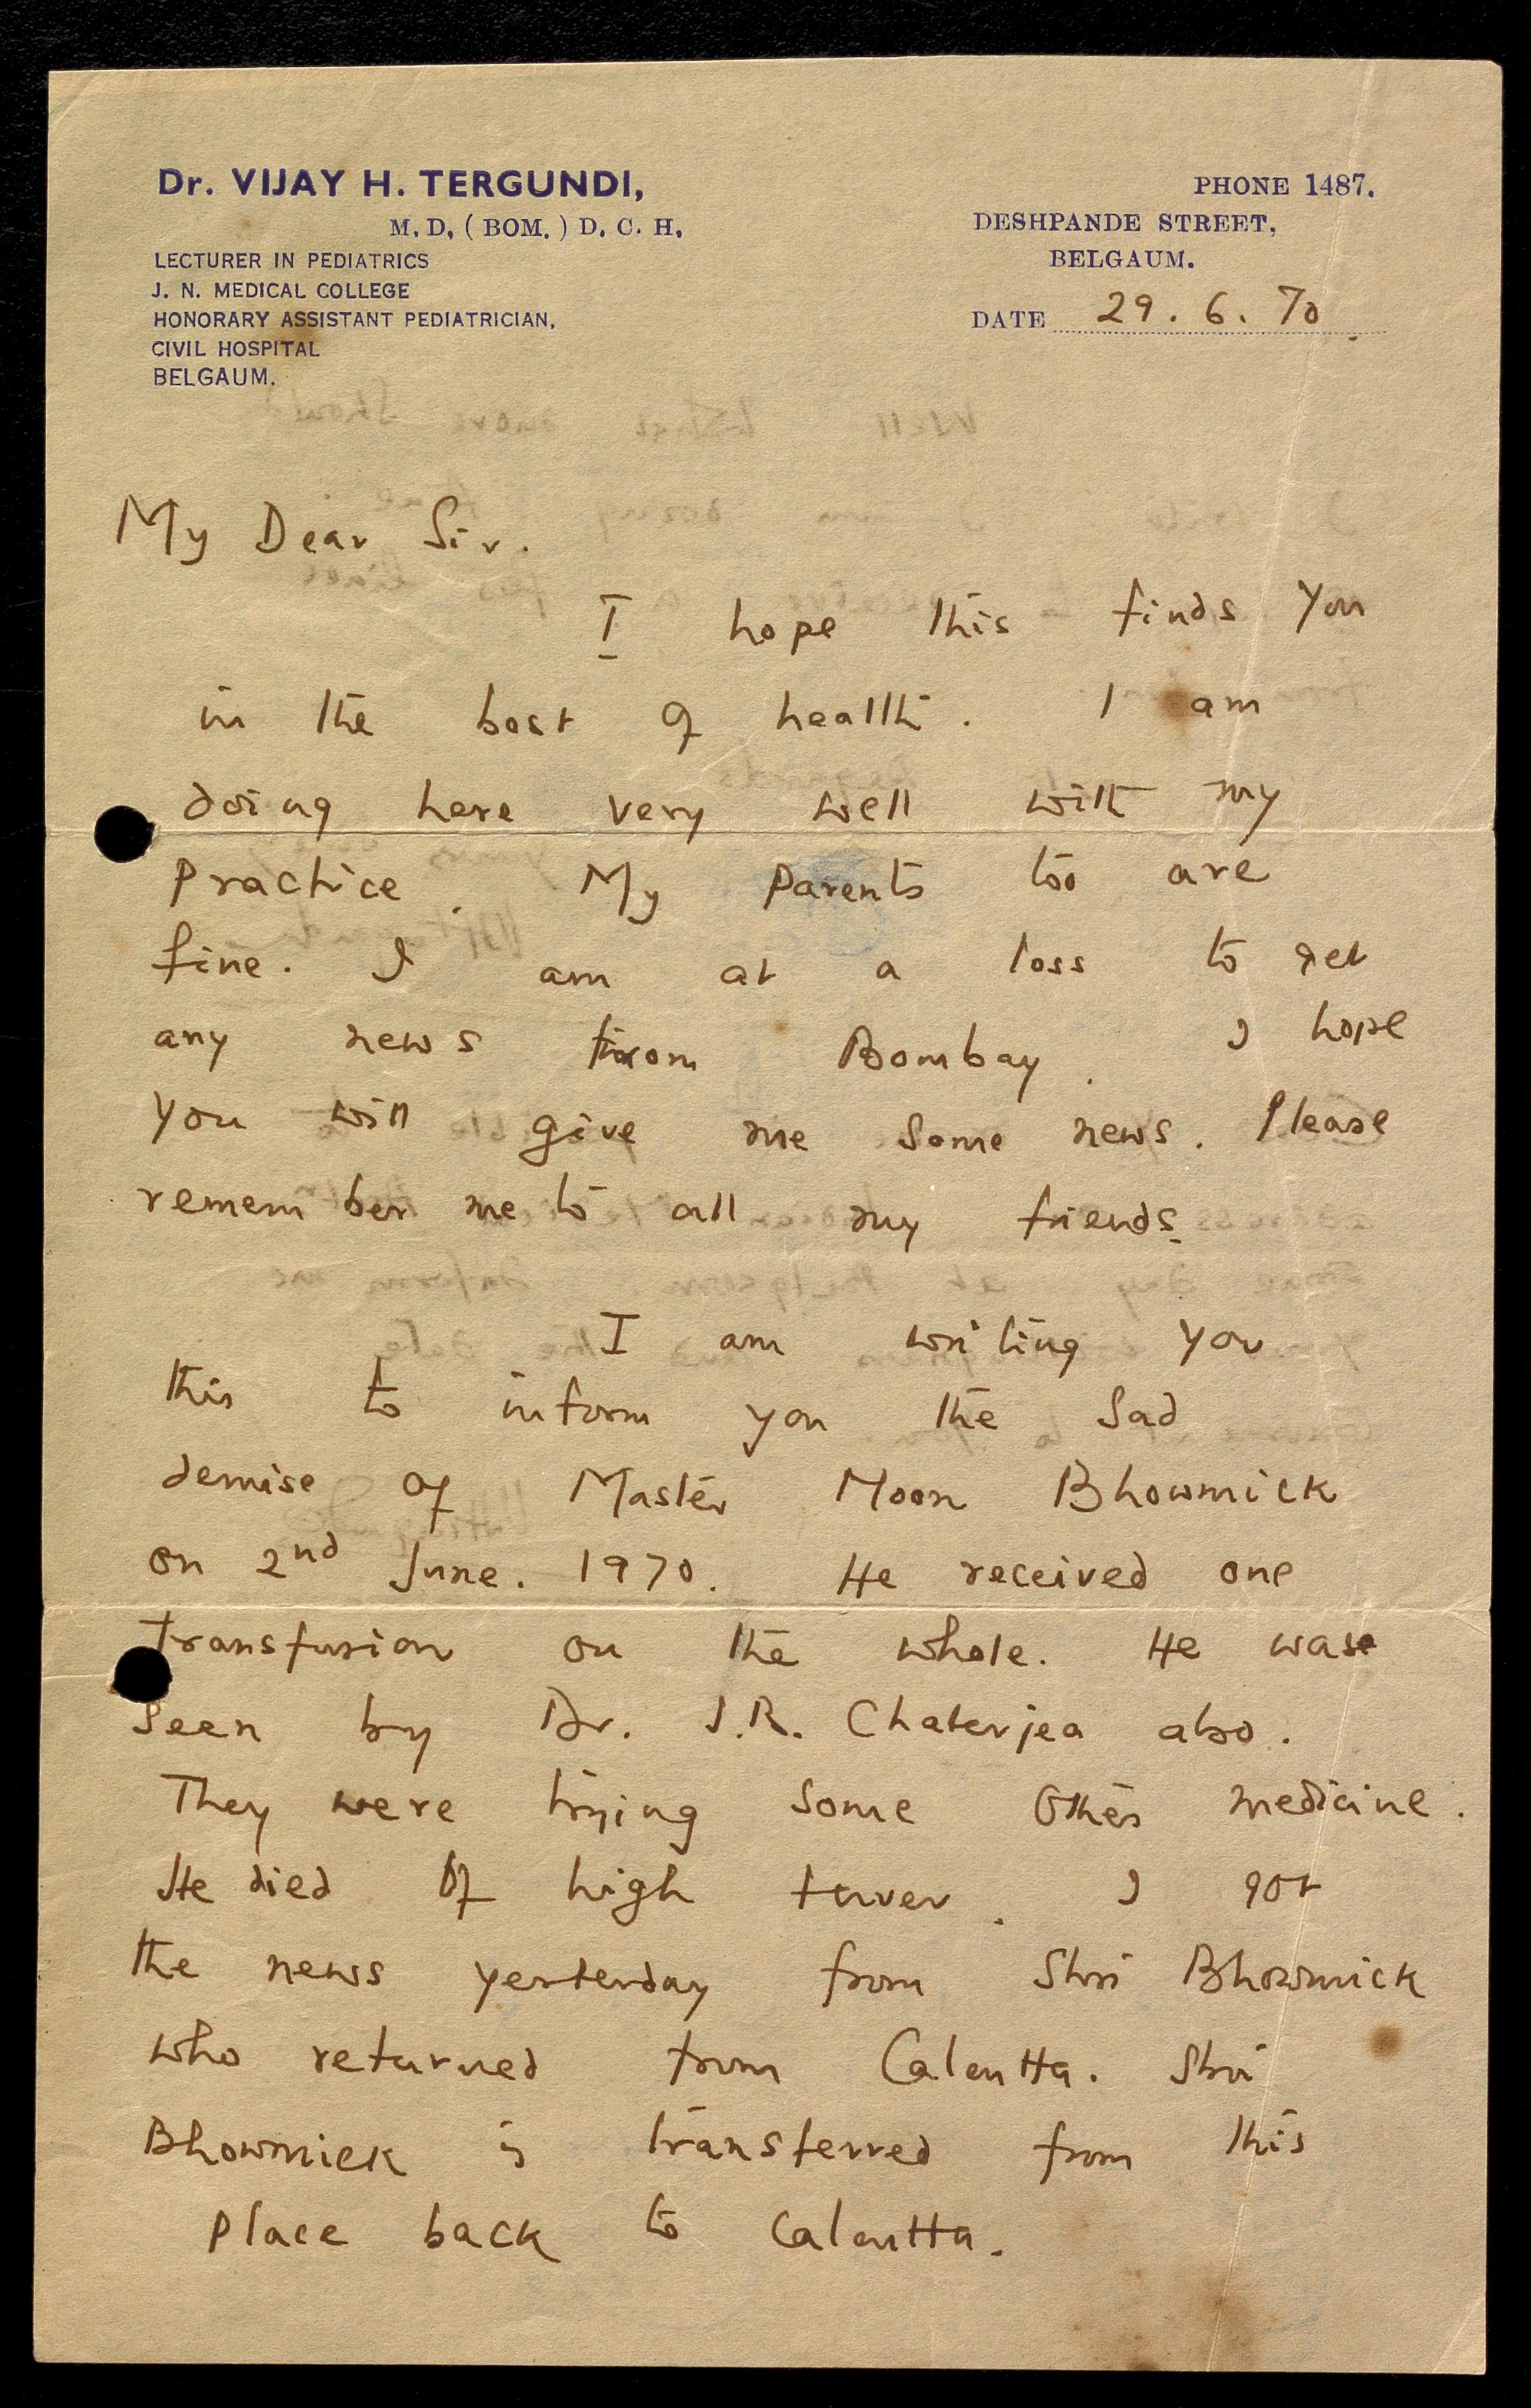 Dr. VIJAY H. TERGUNDI,
M. D. ( BOM. ) D. C. H.
LECTURER IN PEDIATRICS
J. N. MEDICAL COLLEGE
HONORARY ASSISTANT PEDIATRICIAN,
CIVIL HOSPITAL
BELGAUM.
PHONE 1487.
DESHPANDE STREET,
BELGAUM.
DATE 29. 6. 70
My Dear Sir.
I hope this finds you
in the best of health. I am
doing here very well with my
practice. My parents too are
fine. I am at a loss to get
any news from Bombay. I hope
you will give me some news. Please
remember me to all my friends.
I am writing you
this to inform you the sad
demise of Master Moon Bhowmick
on 2nd June. 1970. He received one
transfusion on the whole. He was
seen by Dr. J.R. Chaterjea also.
They were trying some other medicine.
He died of high fever. I got
the news yesterday from Shri Bhowmick
who returned from Calcutta. Shri
Bhowmick is transferred from this
place back to Calcutta.